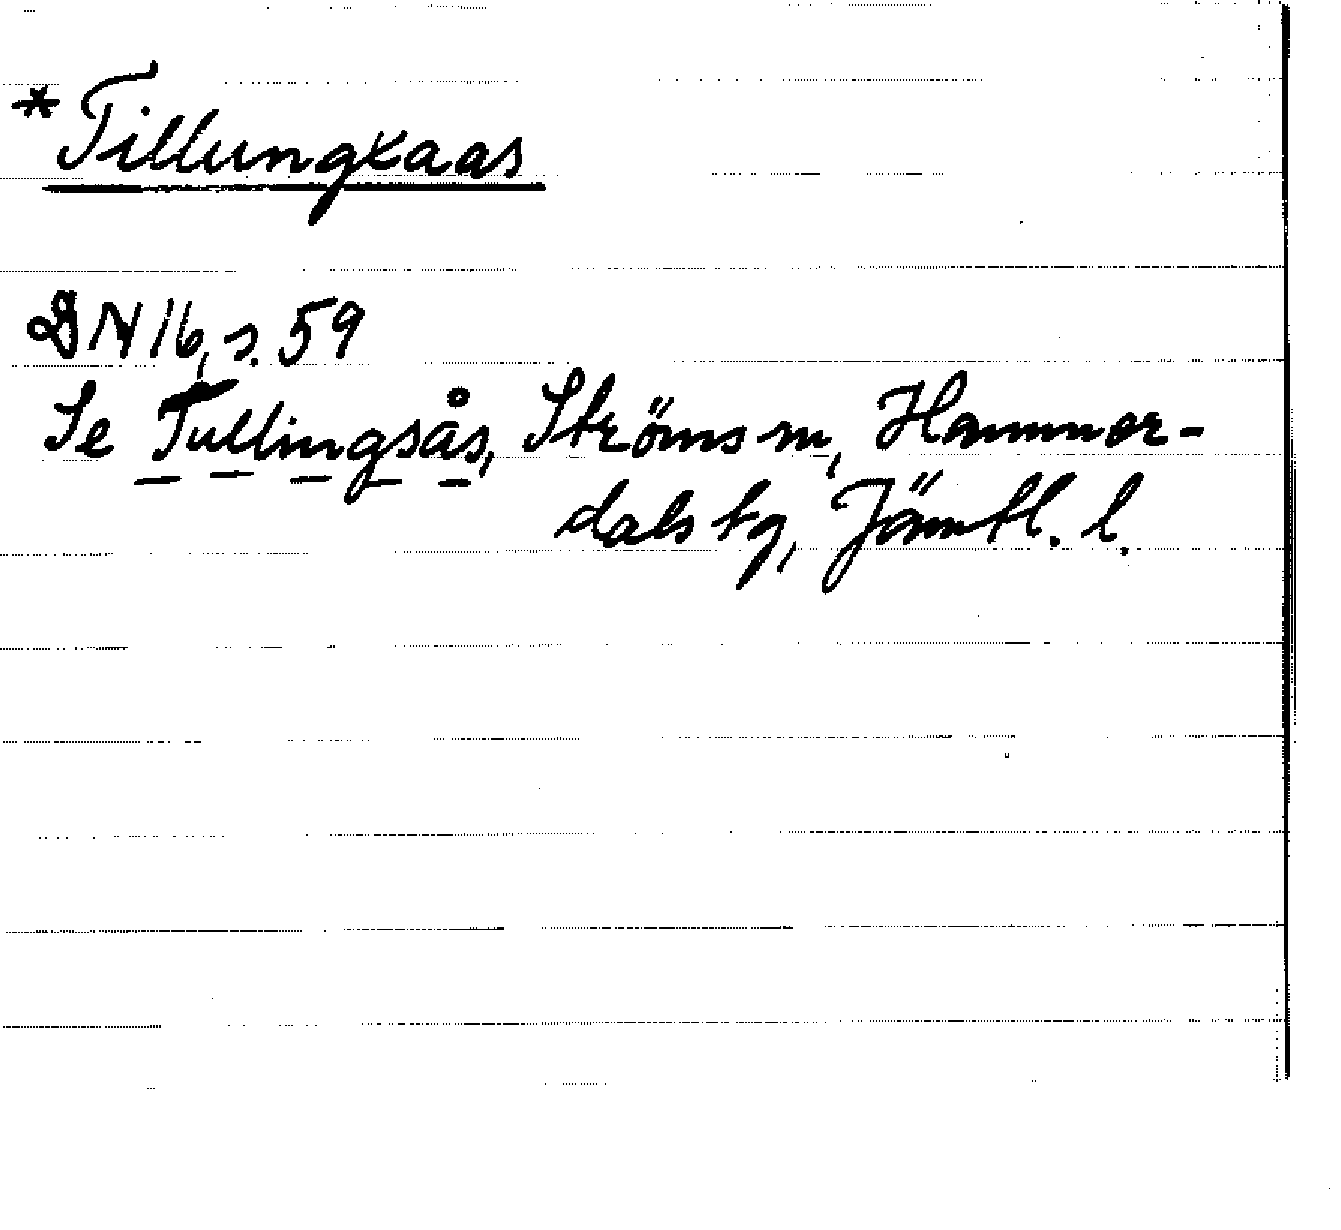 *Tillungxaas
DN 16, s. 59
Se Tullingsås, Ströms sn, Hammer-
dals tg, Jämtl. l.